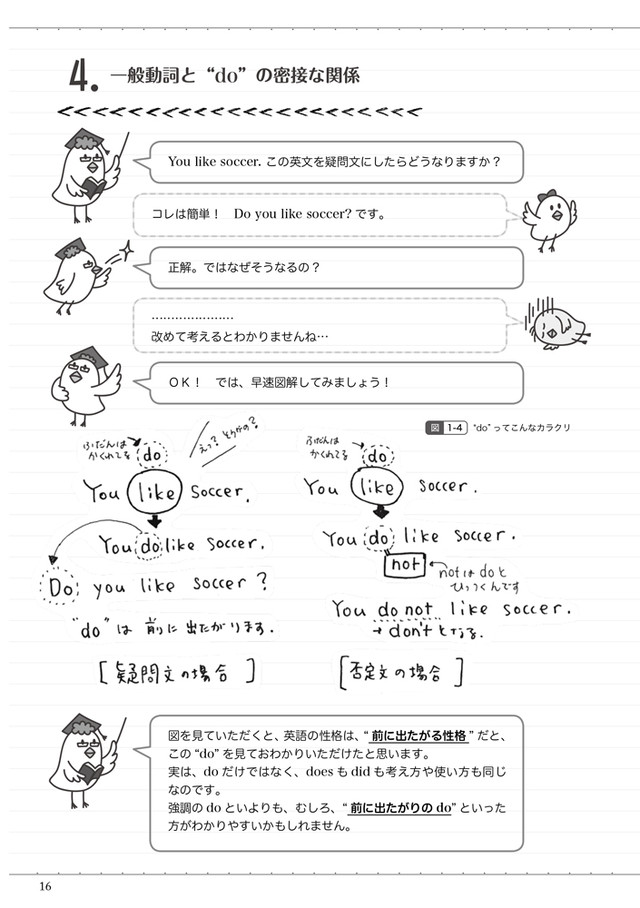 4. 一般動詞と“do”の密接な関係
You like soccer. この英文を疑問文にしたらどうなりますか？
コレは簡単！　Do you like soccer? です。
正解。ではなぜそうなるの？
…………………
改めて考えるとわかりませんね…
ＯＫ！　では、早速図解してみましょう！
図 1-4 “do”ってこんなカラクリ
ふだんは
かくれてる
do
えっ？そうなの？
You like soccer.
You do like soccer.
Do you like soccer?
"do" は 前に 出たがります.
[疑問文の場合]
ふだんは
かくれてる
do
You like soccer.
You do like soccer.
not
notはdoと
ひっつくんです
You do not like soccer.
→ don't となる.
[否定文の場合]
図を見ていただくと、英語の性格は、“前に出たがる性格”だと、
この“do”を見ておわかりいただけたと思います。
実は、do だけではなく、does も did も考え方や使い方も同じ
なのです。
強調の do といよりも、むしろ、“前に出たがりの do”といった
方がわかりやすいかもしれません。
16